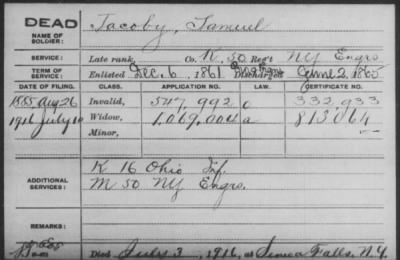 DEAD
NAME OF SOLDIER: Jacoby, Samuel
SERVICE: Late rank, Co. K, 50 Reg't NY Engrs
TERM OF SERVICE: Enlisted Dec. 6, 1861 Discharged June 2, 1865
DATE OF FILING. CLASS. APPLICATION NO. LAW. CERTIFICATE NO.
1885 Aug 26 Invalid, 547,992 332,933
1916 July 10 Widow, 1,069,004 813,064
Minor,
ADDITIONAL SERVICES: K 16 Ohio Inf.
M 50 NY Engrs.
REMARKS:
Died July 3, 1916, at Seneca Falls, N.Y.